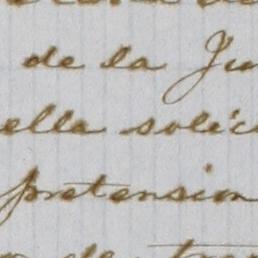 de la Ju
ella solic
pretension
de